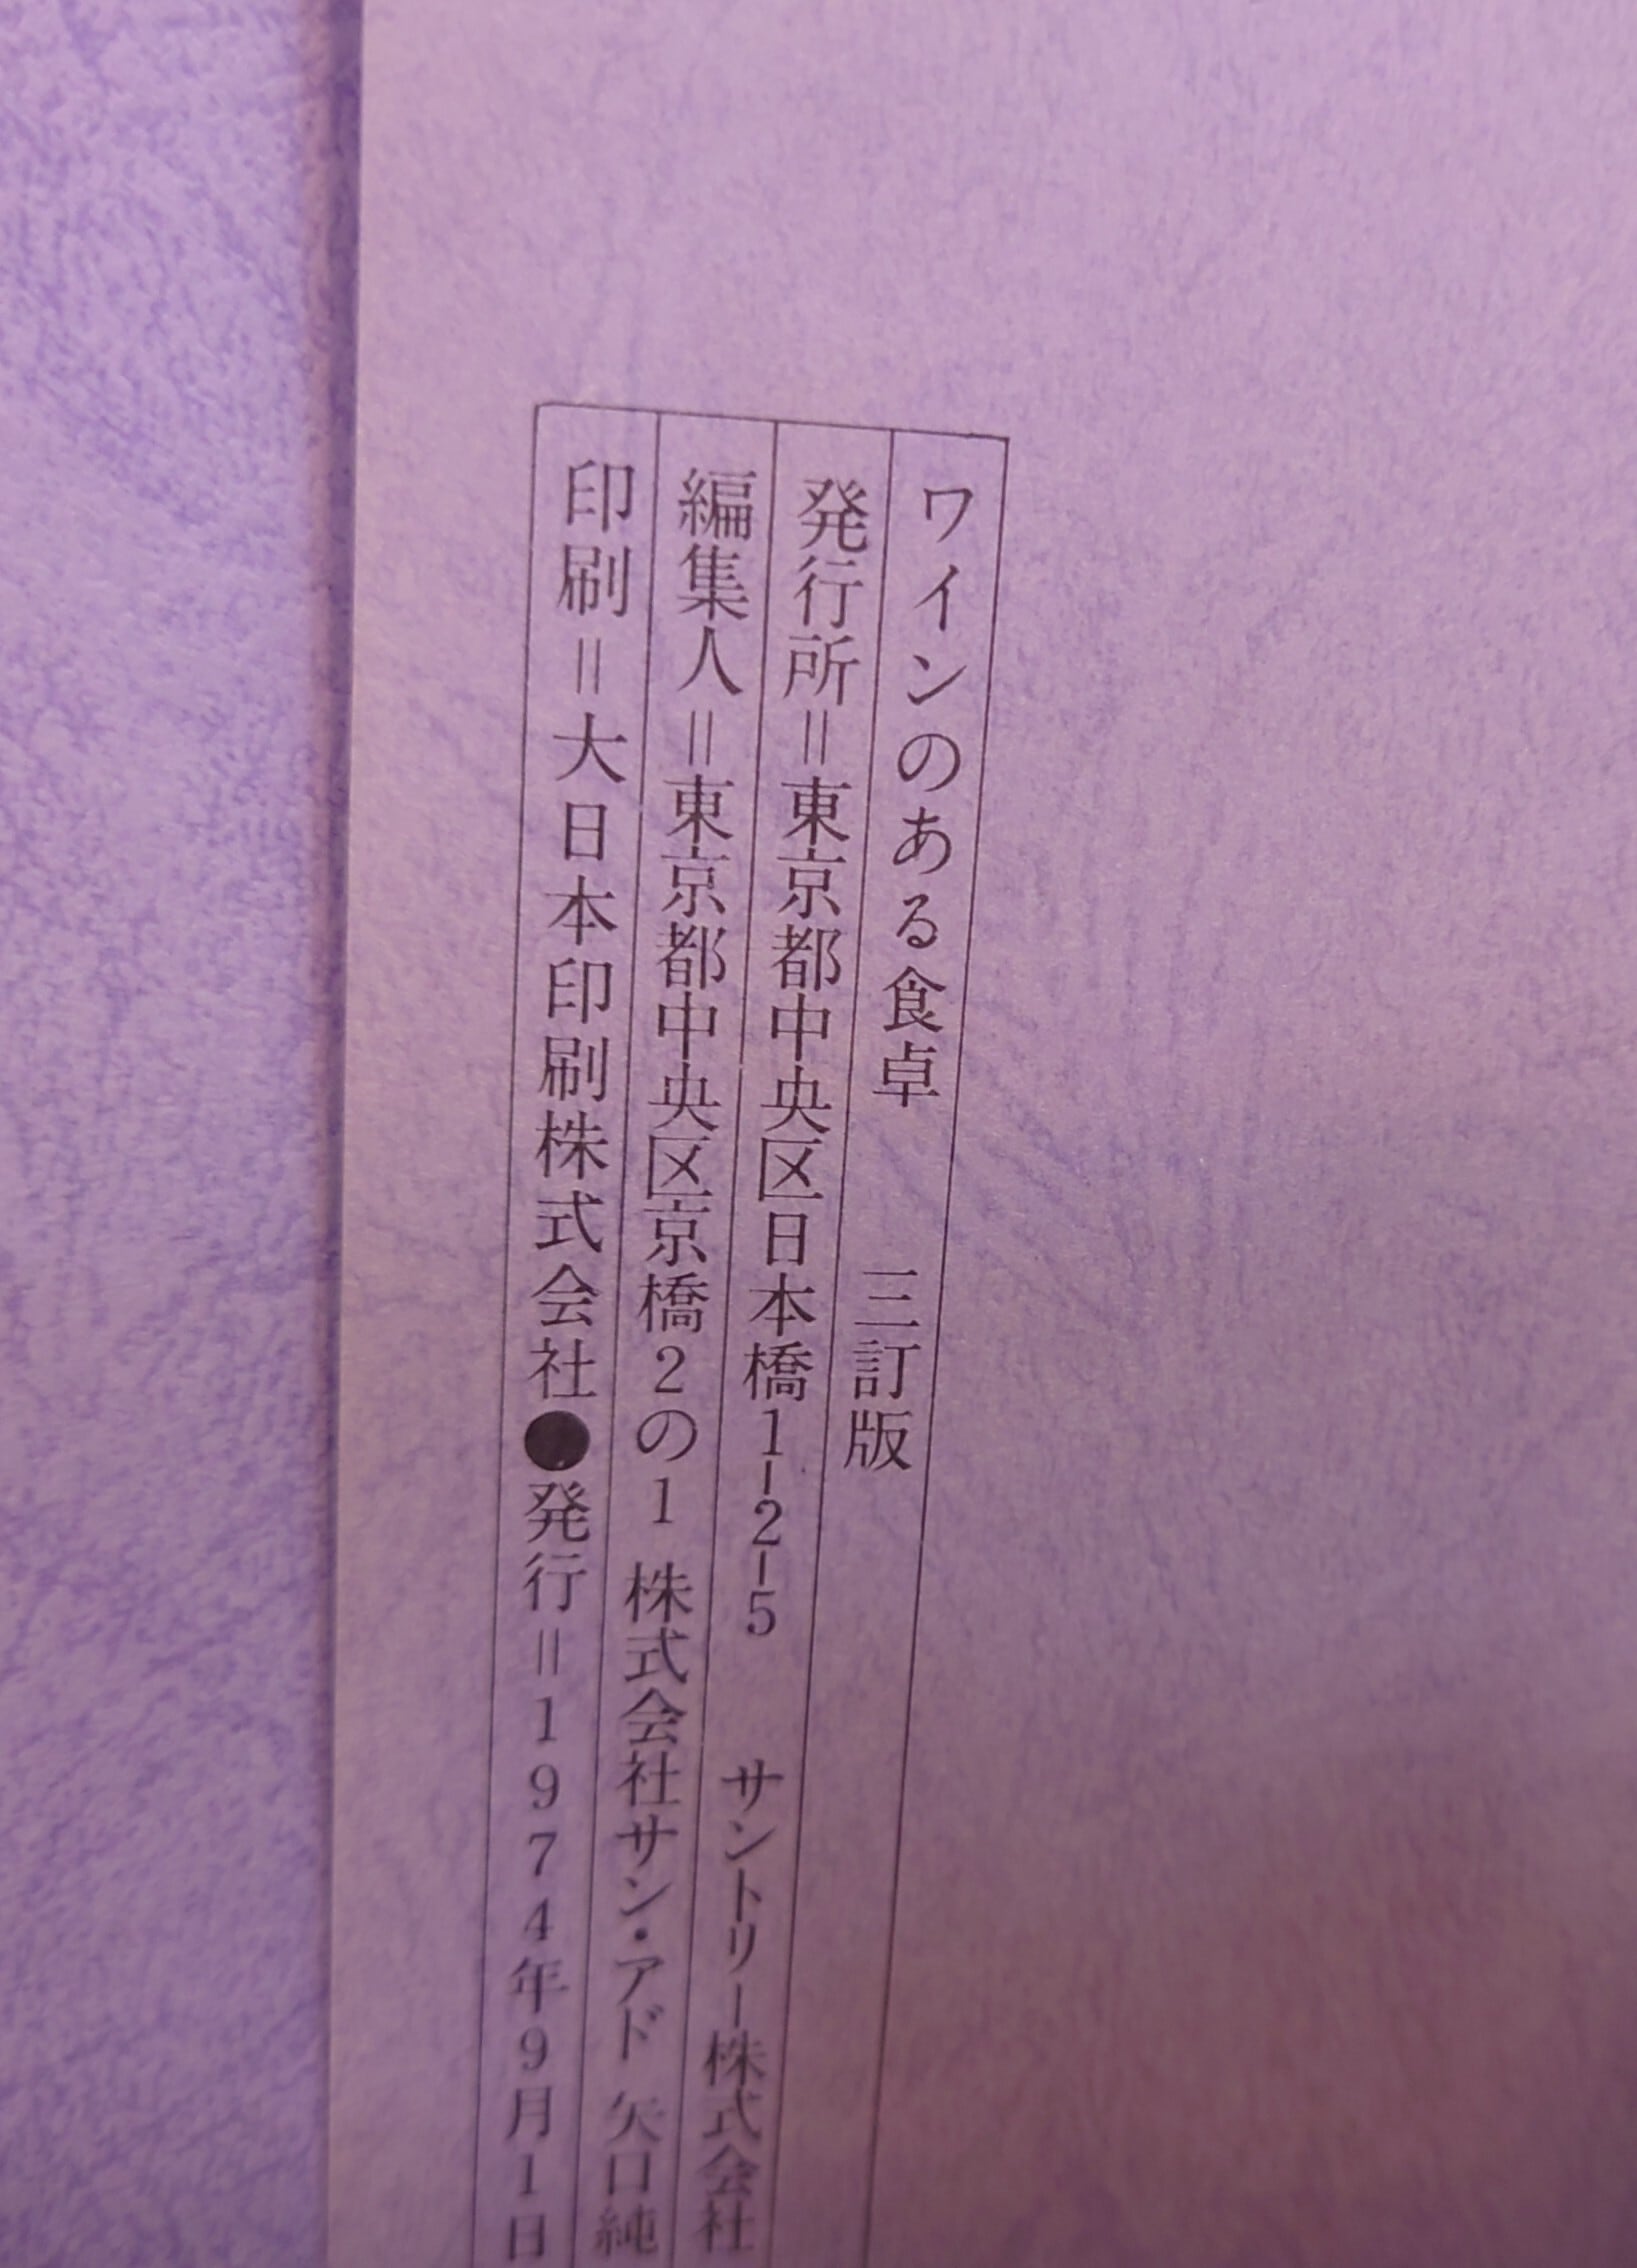 ワインのある食卓　三訂版
発行所＝東京都中央区日本橋1-2-5　サントリー株式会社
編集人＝東京都中央区京橋2の1 株式会社サン・アド 矢口純
印刷＝大日本印刷株式会社●発行＝1974年9月1日